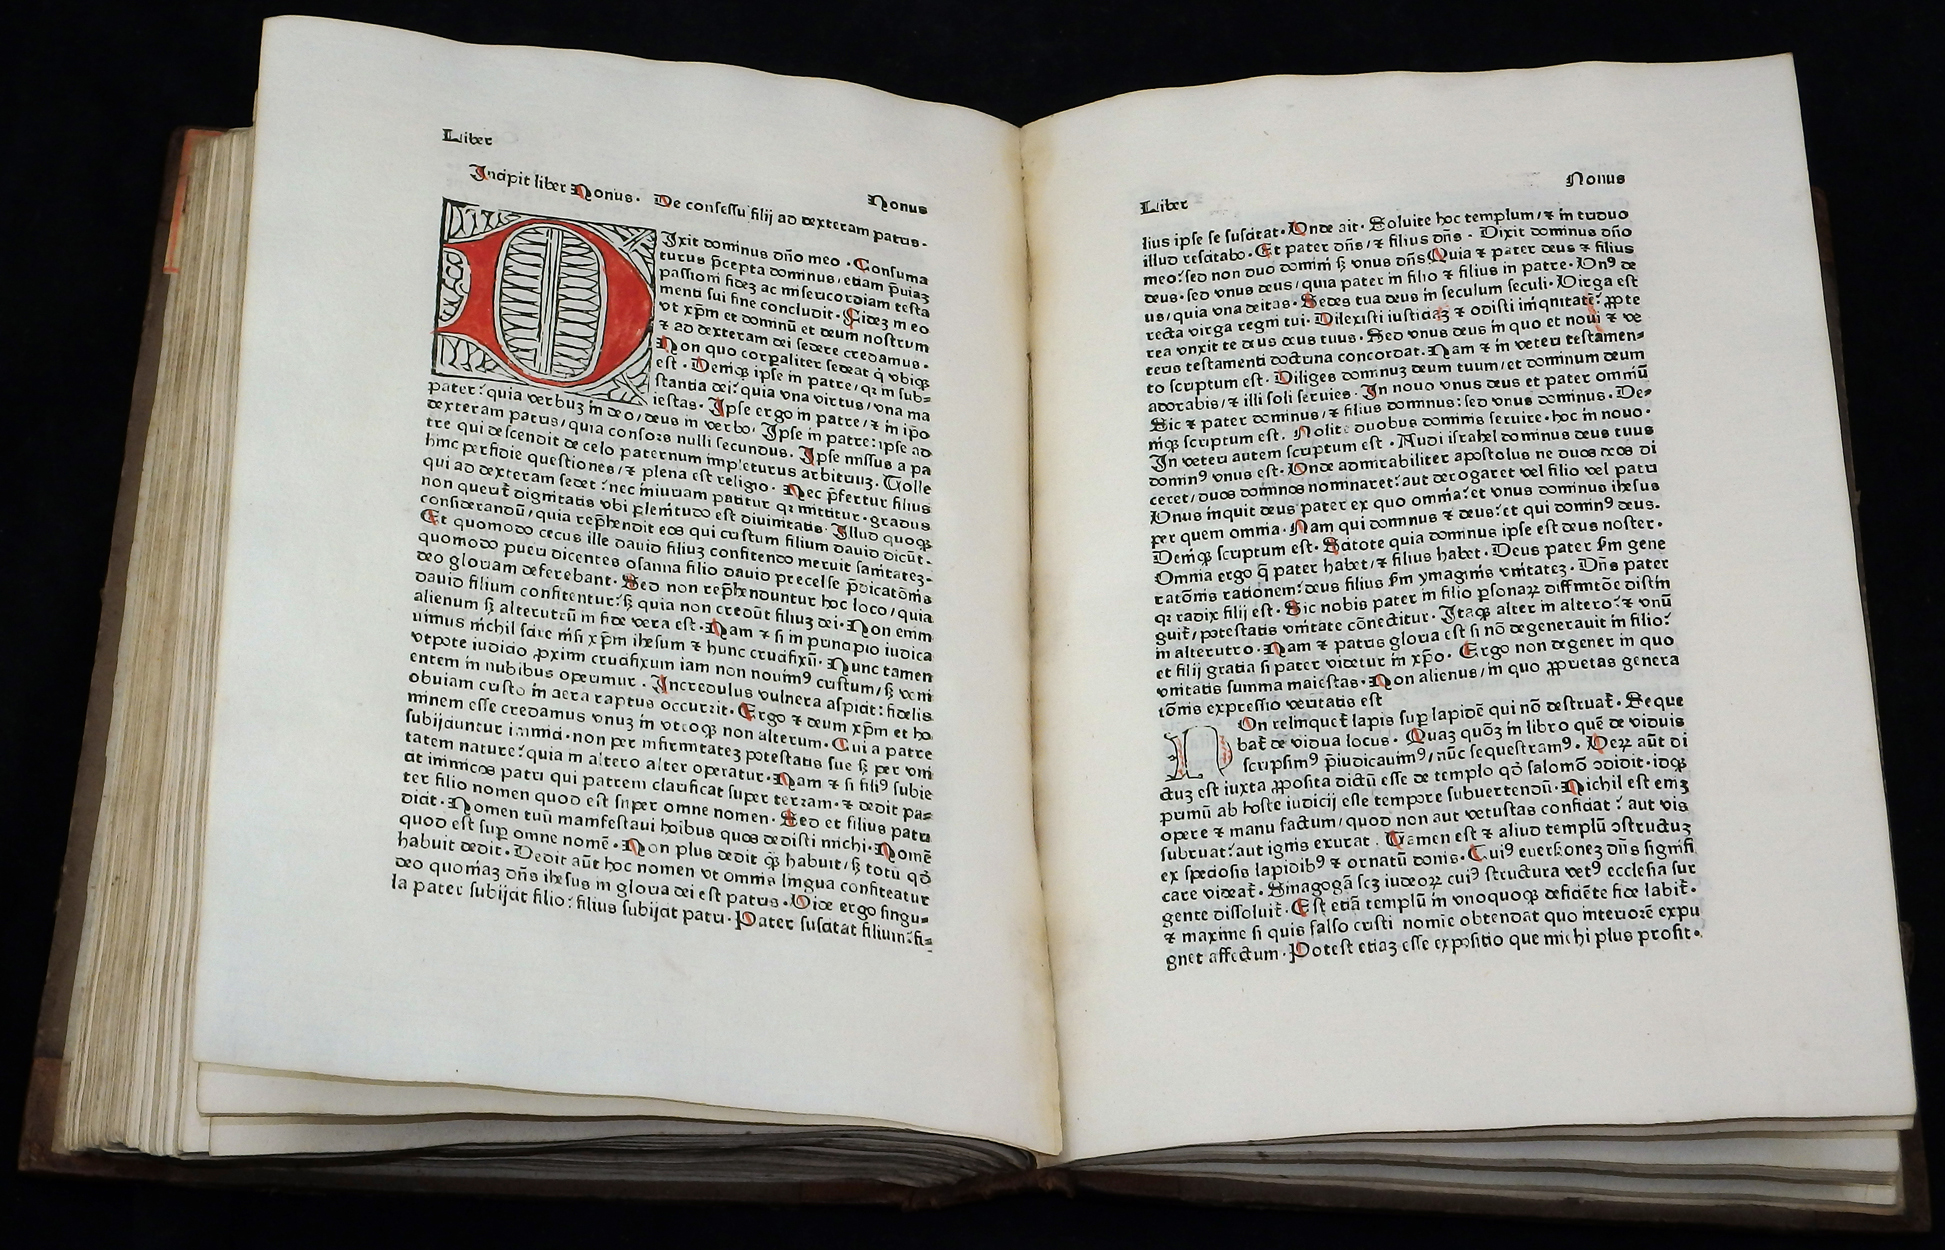 Liber
Nonus
Incipit liber Nonus. De consessu filij ad dexteram patris.
Dixit dominus dño meo. Consuma
turus p̄cepta dominus, etiam p̄uiaȝ
passioni fideȝ ac misericordiam testa
menti sui fine concludit. Fideȝ meo
vt xp̄m et dominū et deum nostrum
⁊ ad dexteram dei sedere credamus.
Non quo corꝑaliter sedeat q̇ vbiqꝫ
est. Demqꝫ ipse in patre/ qꝛ in sub⸗
stantia dei: quia vna virtus/ vna ma
iestas. Ipse ergo in patre/ ⁊ in ip̄o
pater: quia verbuȝ in deo/ deus in verbo. Ipse in patre: ipse ad
dexteram patris/ quia consors nulli secundus. Ipse missus a pa
tre qui descendit de celo paternum impleturus arbitriuȝ. Tolle
hinc perfidie questiones/ ⁊ plena est religio. Nec p̄fertur filius
qui ad dexteram sedet: nec iniuriam patitur qꝛ mittitur. gradus
non querit̄ dignitatis vbi plenitudo est diuinitatis. Illud quoqꝫ
considerandū/ quia rep̄hendit eos qui cristum filium dauid dicūt.
Et quomodo cecus ille dauid filiuȝ confitendo meruit sanitateȝ.
quomodo pueri dicentes osanna filio dauid precelse p̄dicatōnis
deo gloriam deferebant. Sed non rep̄henduntur hoc loco/ quia
dauid filium confitentur: sꝫ quia non credūt filiuȝ dei. Non enim
alienum sꝫ alterutrū in fide vera est. Nam ⁊ si in principio iudica
uimus nichil scire nisi xp̄m ihesum ⁊ hunc crucifixū. Nunc tamen
vtpote iudicio ꝓximi crucifixum iam non nouimꝰ cristum/ sꝫ veni
entem in nubibus operimur. Incredulus vulnera aspiciat: fidelis
obuiam cristo in aera raptus occurrit. Ergo ⁊ deum xp̄m et ho
minem esse credamus vnuȝ in vtroqꝫ non alterum. Cui a patre
subijciuntur inimici. non per infirmitateȝ potestatis sue sꝫ per vni
tatem nature: quia in altero alter operatur. Nam ⁊ si filiꝰ subie
cit inimicos patri qui patrem clarificat super terram. ⁊ dedit pa⸗
ter filio nomen quod est super omne nomen. Sed et filius patri
dicit. Nomen tuū manifestaui hoibus quos dedisti michi. Nomē
quod est suꝑ omne nomē. Non plus dedit q̄ꝫ habuit/ sꝫ totū qd̄
habuit dedit. Dedit aūt hoc nomen vt omnis lingua confiteatur
deo quoniaȝ dn̄s ihesus in gloria dei est patris. Vide ergo singu⸗
la pater subijcit filio: filius subijcit patri. Pater suscitat filium: fi⸗
Liber
Nonus
lius ipse se suscitat. Onde ait. Soluite hoc templum/ ⁊ in triduo
illud rescitabo. Et pater dn̄s/ ⁊ filius dn̄s. Dixit dominus dño
meo: sed non duo domini sꝫ vnus dn̄s Quia ⁊ pater deus ⁊ filius
deus. sed vnus deus/ quia pater in filio ⁊ filius in patre. Vnꝰ de
us/ quia vna deitas. Sedes tua deus in seculum seculi. Virga est
recta virga regni tui. Dilexisti iusticiaȝ ⁊ odisti iniquitatē: ꝓpte
rea vnxit te deus deus tuus. Sed vnus deus in quo et noui ⁊ ve
teris testamenti doctrina concordat. Nam ⁊ in veteri testamen⸗
to scriptum est. Diliges dominuȝ deum tuum/ et dominum deum
adorabis/ ⁊ illi soli seruies. In nouo vnus deus et pater omniū
Sic ⁊ pater dominus/ ⁊ filius dominus: sed vnus dominus. De⸗
niqꝫ scriptum est. Nolite duobus dominis seruire. hoc in nouo.
In veteri autem scriptum est. Audi israhel dominus deus tuus
dominꝰ vnus est. Onde admirabiliter apostolus ne duos deos di
ceret/ duos dominos nominaret: aut derogaret vel filio vel patri
Vnus inquit deus pater ex quo omnia: et vnus dominus ihesus
per quem omnia. Nam qui dominus ⁊ deus: et qui dominꝰ deus.
Demqꝫ scriptum est. Scitote quia dominus ipse est deus noster.
Omnia ergo q̄ pater habet/ ⁊ filius habet. Deus pater ẜm gene
ratōnis rationem: deus filius ẜm ymaginis vnitateȝ. Dn̄s pater
qꝛ radix filij est. Sic nobis pater in filio ꝑsonaꝝ diffinitōe distin
guit̄/ potestatis vnitate cōnectitur. Itaqꝫ alter in altero: ⁊ vnū
in alterutro. Nam ⁊ patris gloria est si nō degenerauit in filio:
et filij gratia si pater videtur in xp̄o. Ergo non degener in quo
vnitatis summa maiestas. Non alienus/ in quo ꝓprietas genera
tōnis expressio veritatis est
Non relinquet̄ lapis suꝑ lapidē qui nō destruat̄. Seque
bat̄ de vidua locus. Quaȝ quōȝ in libro quē de viduis
scripsimꝰ p̄iudicauimꝰ/ nūc sequestramꝰ. Veꝝ aūt di
ctuȝ est iuxta ꝓposita dictū esse de templo qd̄ salomō ↄdidit. idqꝫ
primū ab hoste iudicij esse tempore subuertendū. Nichil est emȝ
opere ⁊ manu factum/ quod non aut vetustas conficiat: aut vis
subruat: aut ignis exurat. Tamen est ⁊ aliud templū ↄstructuȝ
ex speciosis lapidibꝰ ⁊ ornatū donis. Cuiꝰ euersioneȝ dn̄s signifi
care videat̄. Sinagogā scȝ iudeoꝝ cuiꝰ structura vetꝰ ecclesia sur
gente dissoluit̄. Est etiā templū in vnoquoqꝫ deficiēte fide labit̄.
⁊ maxime si quis falso cristi nomie obtendat quo interiorē expu
gnet affectum. Potest etiaȝ esse expositio que michi plus profit.